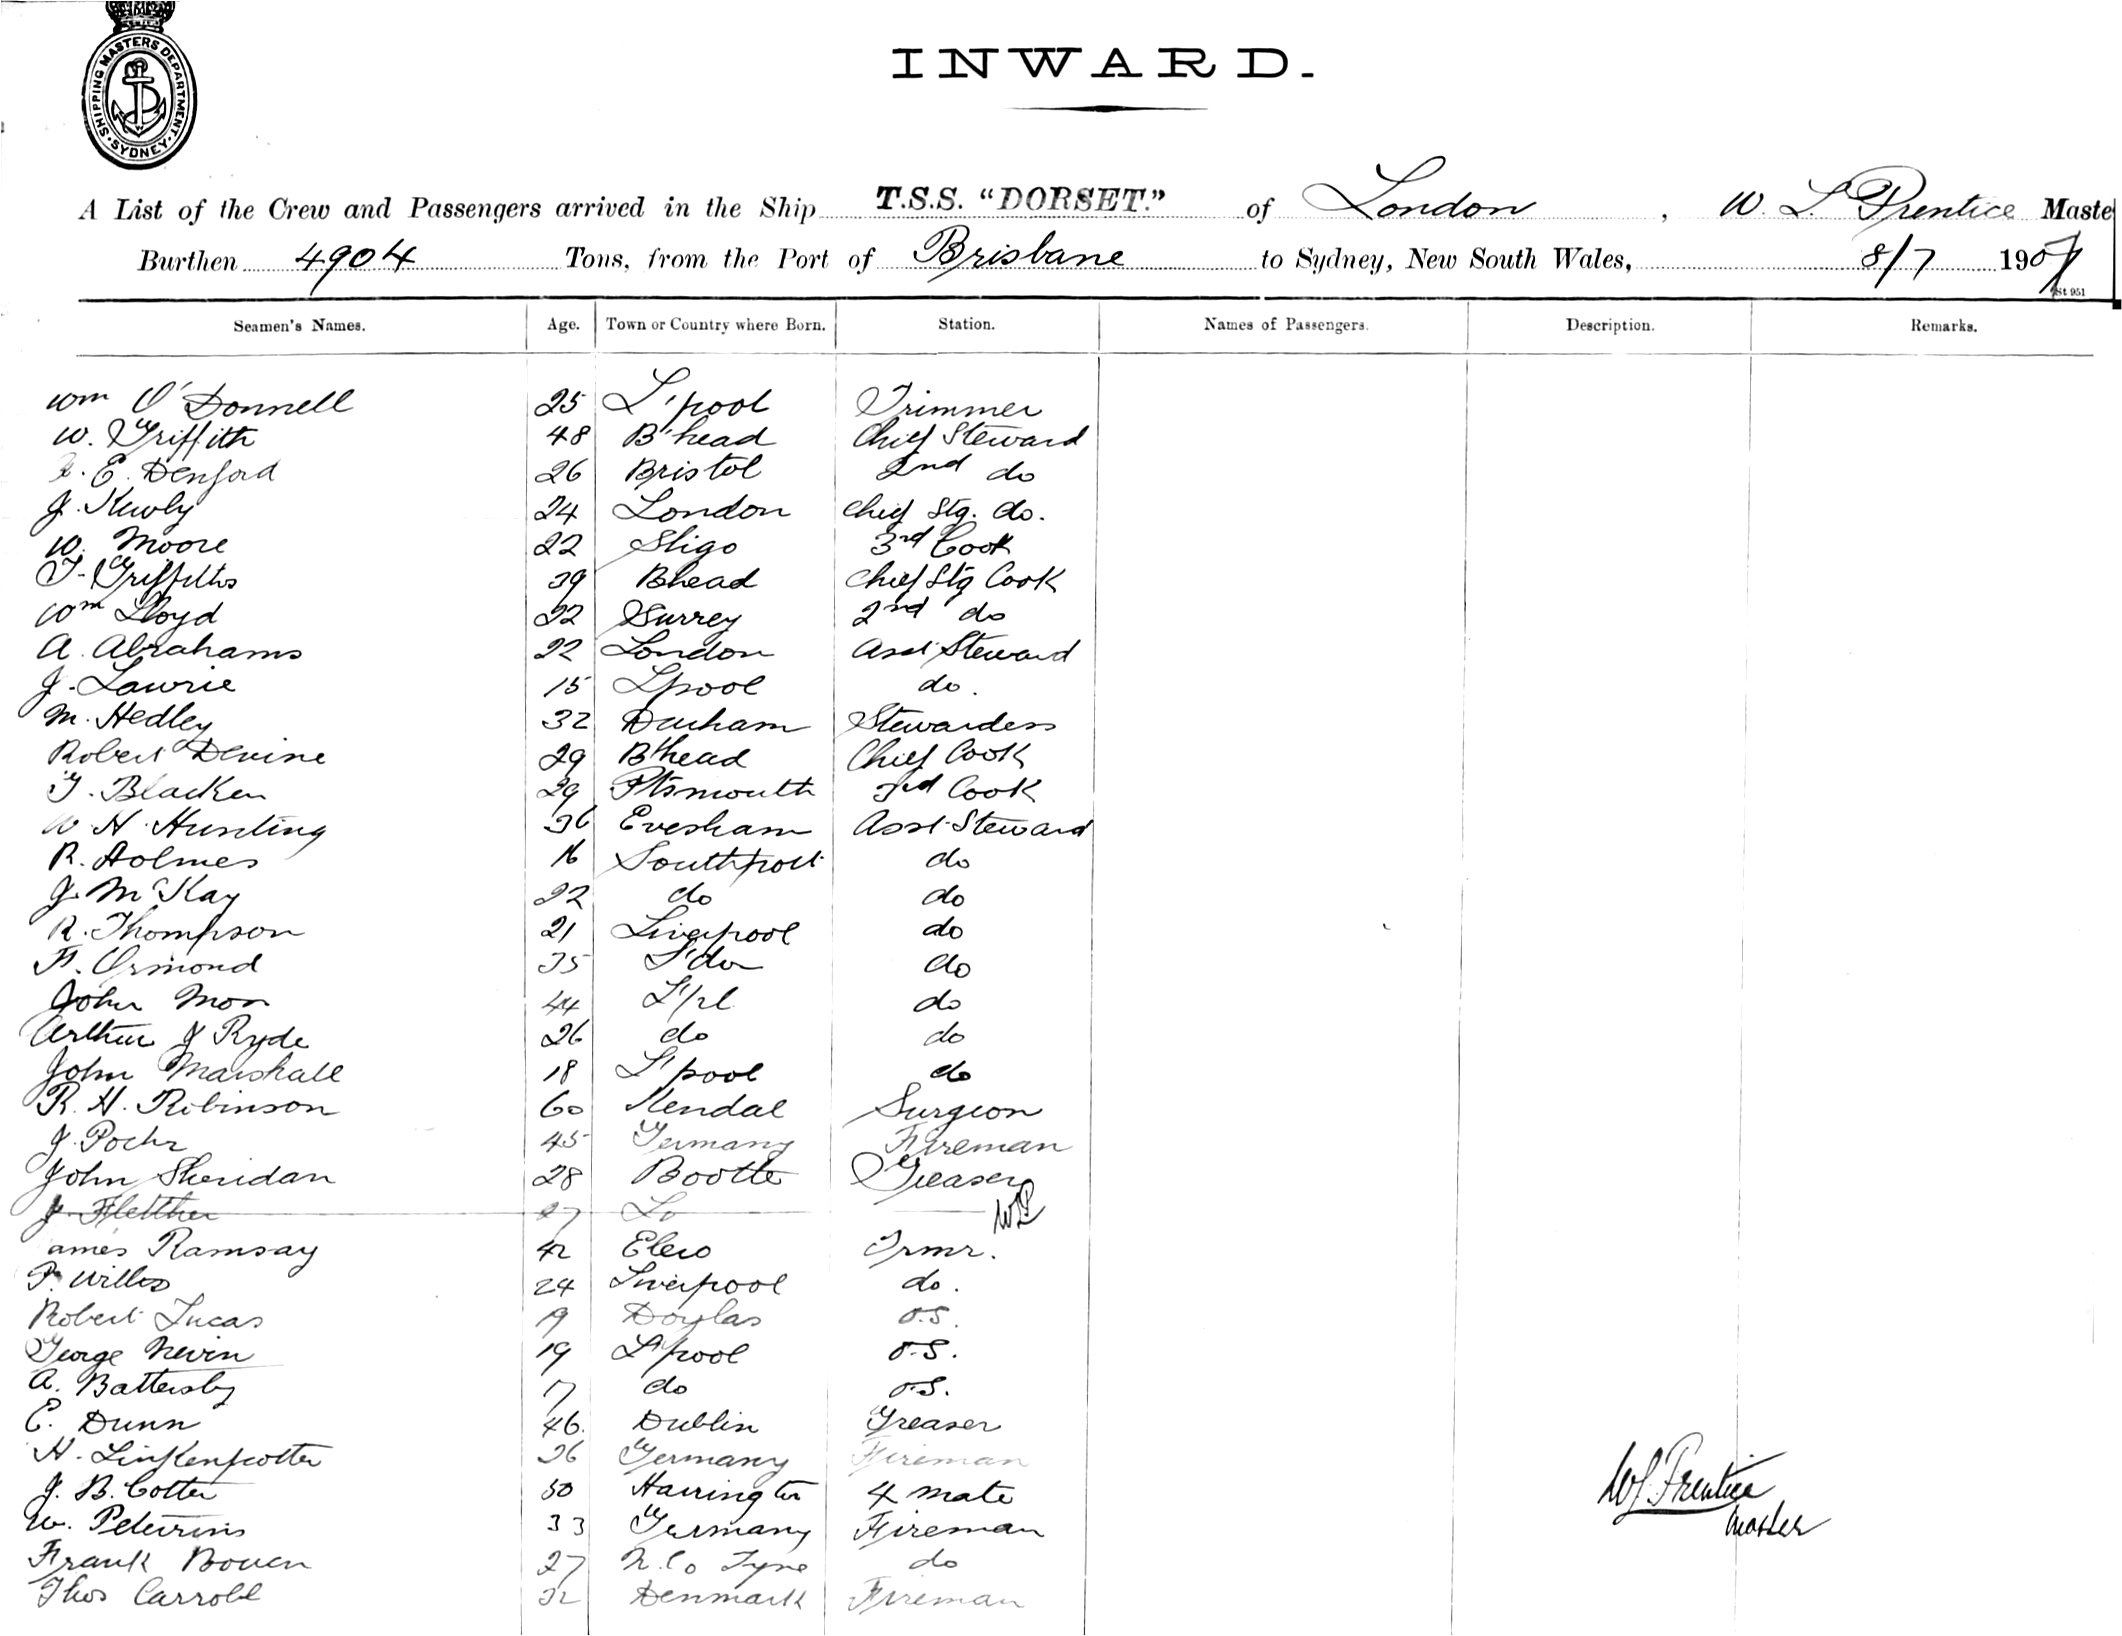 SHIPPING MASTERS DEPARTMENT. SYDNEY.
INWARD.
A List of the Crew and Passengers arrived in the Ship T.S.S. "DORSET." of London, W. L. Prentice Maste
Burthen 4904 Tons, from the Port of Brisbane to Sydney, New South Wales, 8/7 1907
St 951
Seamen's Names. Age. Town or Country where Born. Station. Names of Passengers. Description. Remarks.
Wm O'Donnell 25 L'pool Trimmer
W. Griffith 48 B'head Chief Steward
E. Denford 26 Bristol 2nd do
J. Kewly 24 London Chief Stg. do.
W. Moore 22 Sligo 3rd Cook
T. Griffiths 39 Bhead Chief Stg Cook
Wm Lloyd 22 Surrey 2nd do
A. Abrahams 22 London Asst Steward
J. Lawrie 15 Lpool do.
M. Hedley 32 Durham Stewardess
Robert Devine 29 B'head Chief Cook
T. Blacken 29 Ptsmouth 3rd Cook
W H Hunting 36 Evesham Asst Steward
R. Holmes 16 Southport do
J. McKay 22 do do
R. Thompson 21 Liverpool do
F. Ormond 35 L'don do
John Mon 44 L'pl do
Arthur J Ryde 26 do do
John Marshall 18 L'pool do
R. H. Robinson 60 Kendal Surgeon
J. Pochr 45 Germany Fireman
John Sheridan 28 Bootle Greaser
J. Fletcher 27 Lo WP
ames Ramsay 42 Trmr.
P. Willis 24 Liverpool do.
Robert Lucas 19 Douglas O.S.
George Nevin 19 L'pool O.S.
A. Battersby 17 do O.S.
E. Dunn 46. Dublin Greaser
H. Linkenpotter 26 Germany Fireman
J. B. Cotter 50 Harrington 4 Mate
W. Petersens 33 Germany Fireman
Frank Bowen 27 N. Co Tyne do
Thos Carroll 32 Denmark Fireman
W L Prentice
Master